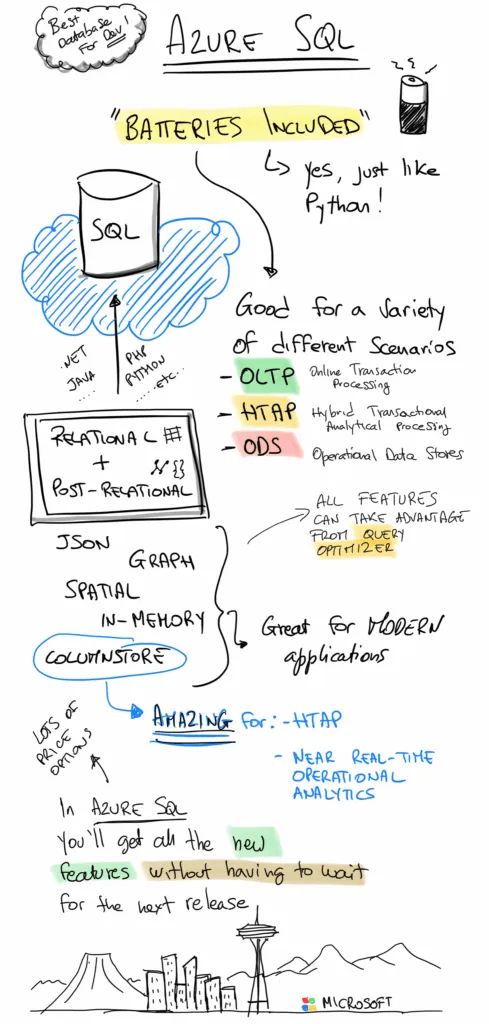 Best
Database
For Dev!
AZURE SQL
"BATTERIES INCLUDED"
Yes, just like
Python!
SQL
Good for a variety
of different Scenarios
- OLTP Online Transaction
Processing
- HTAP Hybrid Transactional
Analytical Processing
- ODS Operational Data Stores
.NET
JAVA
.....
PHP
PYTHON
.....etc...
RELATIONAL
+
{}
POST-RELATIONAL
ALL FEATURES
CAN TAKE ADVANTAGE
FROM QUERY
OPTIMIZER
JSON
GRAPH
SPATIAL
IN-MEMORY
COLUMNSTORE
Great for MODERN
applications
AMAZING FOR: - HTAP
- NEAR REAL-TIME
OPERATIONAL
ANALYTICS
LOTS OF
PRICE
OPTIONS
In AZURE SQL
You'll get all the new
features without having to wait
for the next release
MICROSOFT